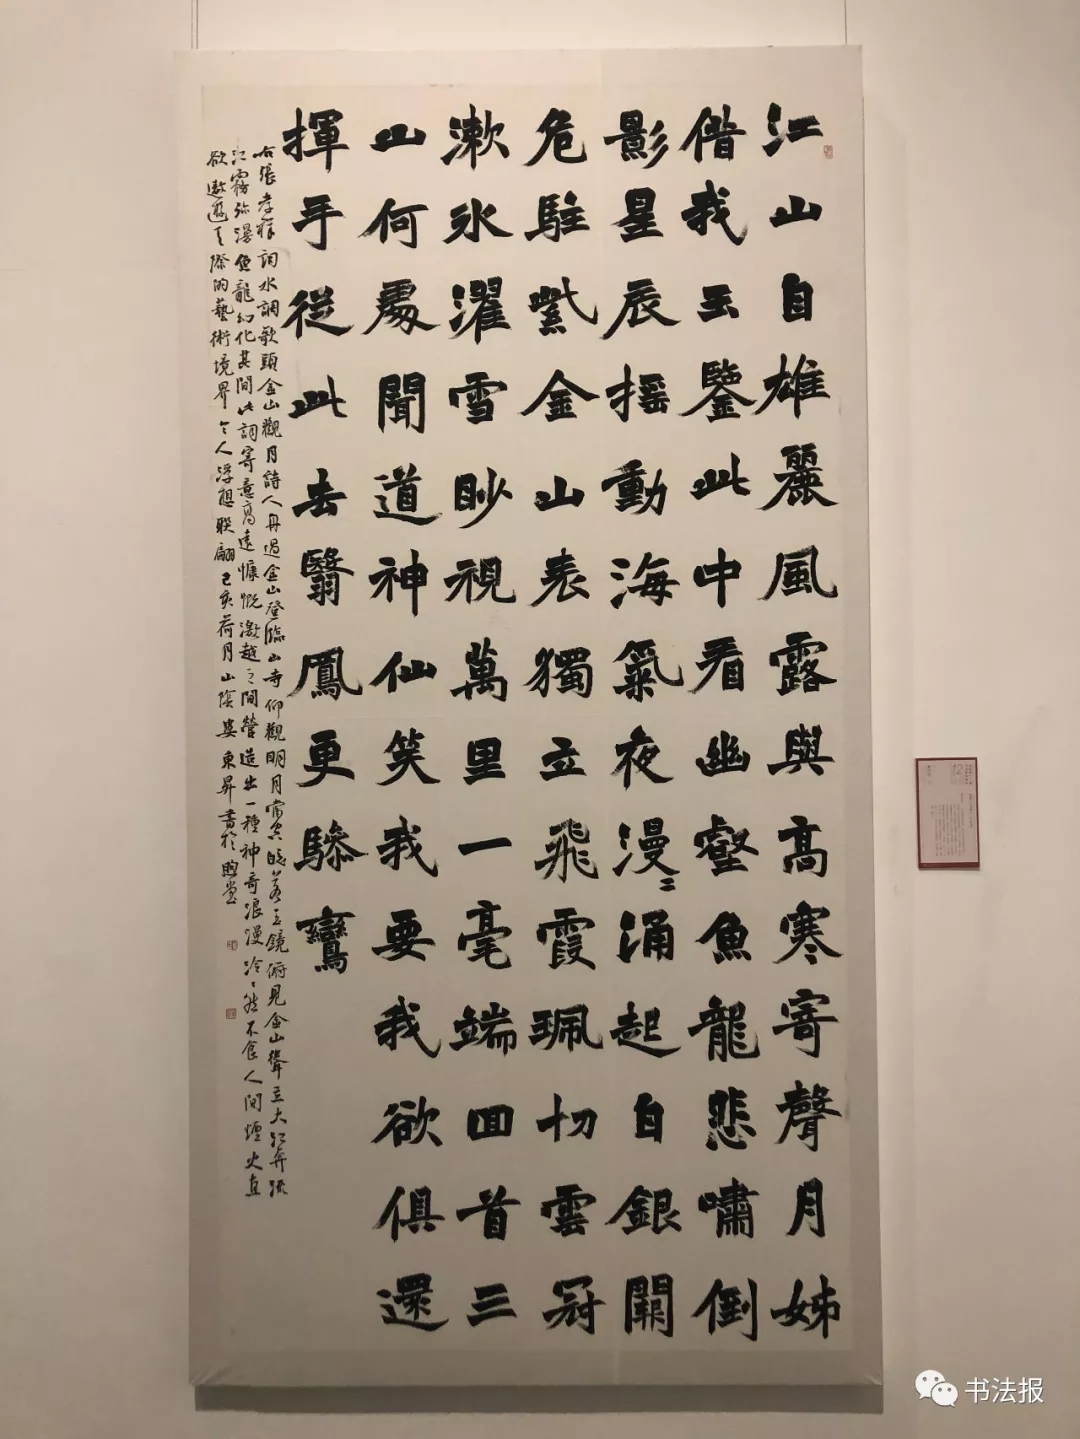 江山自雄麗風露與高寒寄聲月姊
借我玉鑒此中看幽壑魚龍悲嘯倒
影星辰搖動海氣夜漫〻涌起白銀闕
危駐紫金山表獨立飛霞珮切雲冠
漱冰濯雪眇視萬里一毫端回首三
山何處聞道神仙笑我要我欲俱還
揮手從此去翳鳳更驂鸞
右張孝祥詞水調歌頭金山觀月詩人舟過金山登臨山寺仰觀明月當空皎若玉鏡俯見金山聳立大江奔流
江霧弥漫魚龍幻化其間此詞寄意高遠慷慨激越之間營造出一種神奇浪漫冷〻然不食人間煙火直
欲遨遊天際的藝術境界令人浮想聯翩己亥荷月山陰婁東昇書於煦堂
书法报